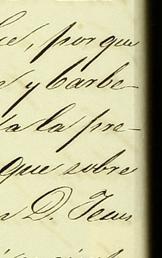 ce, porque
e y barbe-
ía la pre-
que sobre
n D. Jesus